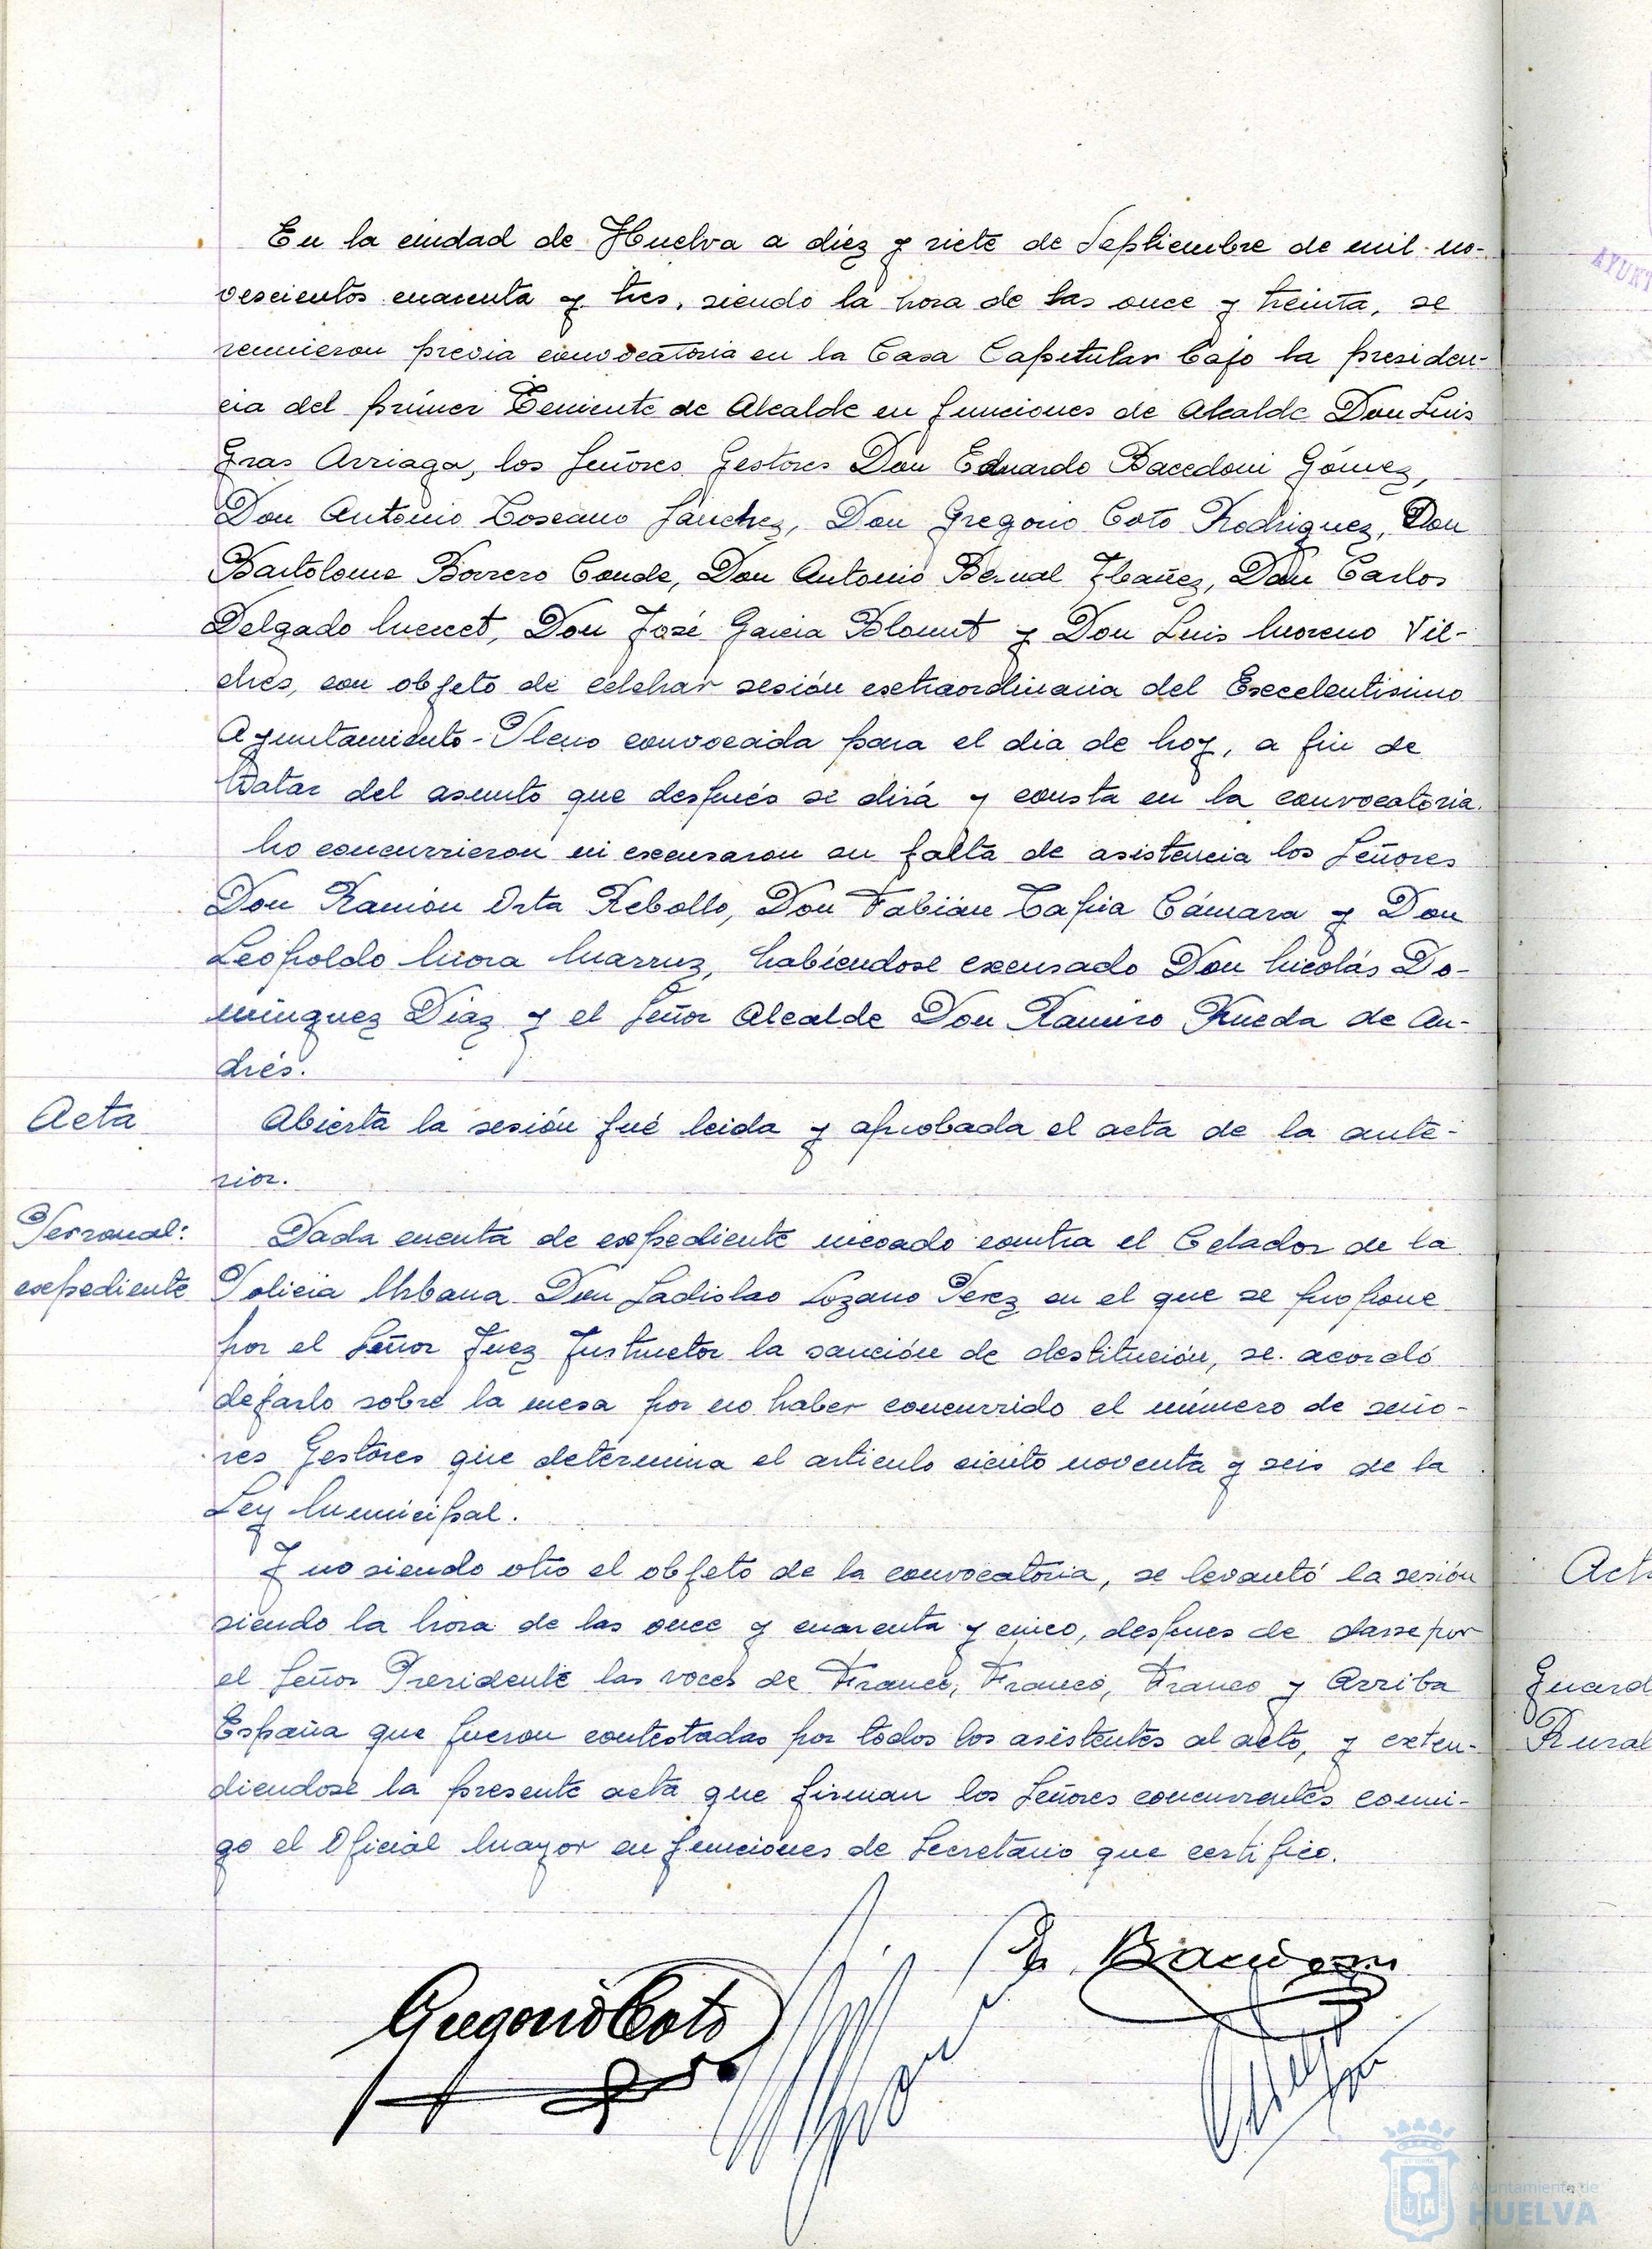 En la ciudad de Huelva a diez y siete de Septiembre de mil no-
vescientos cuarenta y tres, siendo la hora de las once y treinta, se
reunieron previa convocatoria en la Casa Capitular bajo la presiden-
cia del primer Teniente de Alcalde en funciones de Alcalde Don Luis
Gras Arriaga, los Señores Gestores Don Eduardo Bacedoni Gómez,
Don Antonio Toscano Sanchez, Don Gregorio Coto Rodriguez, Don
Bartolome Borrero Conde, Don Antonio Bernal Ibañez, Don Carlos
Delgado Mercet, Don José Garcia Blount y Don Luis Moreno Vil-
ches, con objeto de celebrar sesión extraordinaria del Excelentisimo
Ayuntamiento-Pleno convocada para el dia de hoy, a fin de
tratar del asunto que después se dirá y consta en la convocatoria.
No concurrieron ni excusaron su falta de asistencia los Señores
Don Ramón Orta Rebollo, Don Fabián Tapia Cámara y Don
Leopoldo Mora Marruz, habiendose excusado Don Nicolás Do-
minguez Diaz y el Señor Alcalde Don Ramiro Rueda de An-
drés.
Acta
Abierta la sesión fué leida y aprobada el acta de la ante-
rior.
Personal:
expediente
Dada cuenta de expediente incoado contra el Celador de la
Policia Urbana Don Ladislao Lozano Perez en el que se propone
por el Señor Juez Instructor la sanción de destitución, se acordó
dejarlo sobre la mesa por no haber concurrido el número de seño-
res Gestores que determina el articulo ciento noventa y seis de la
Ley Municipal.
Y no siendo otro el objeto de la convocatoria, se levantó la sesión
siendo la hora de las once y cuarenta y cinco, despues de darse por
el Señor Presidente las voces de Franco, Franco, Franco y Arriba
España que fueron contestadas por todos los asistentes al acto, y exten-
diendose la presente acta que firman los Señores concurrentes conmi-
go el Oficial Mayor en funciones de Secretario que certifico.
Gregorio Coto
E. Bacedoni
Ayuntamiento de
HUELVA